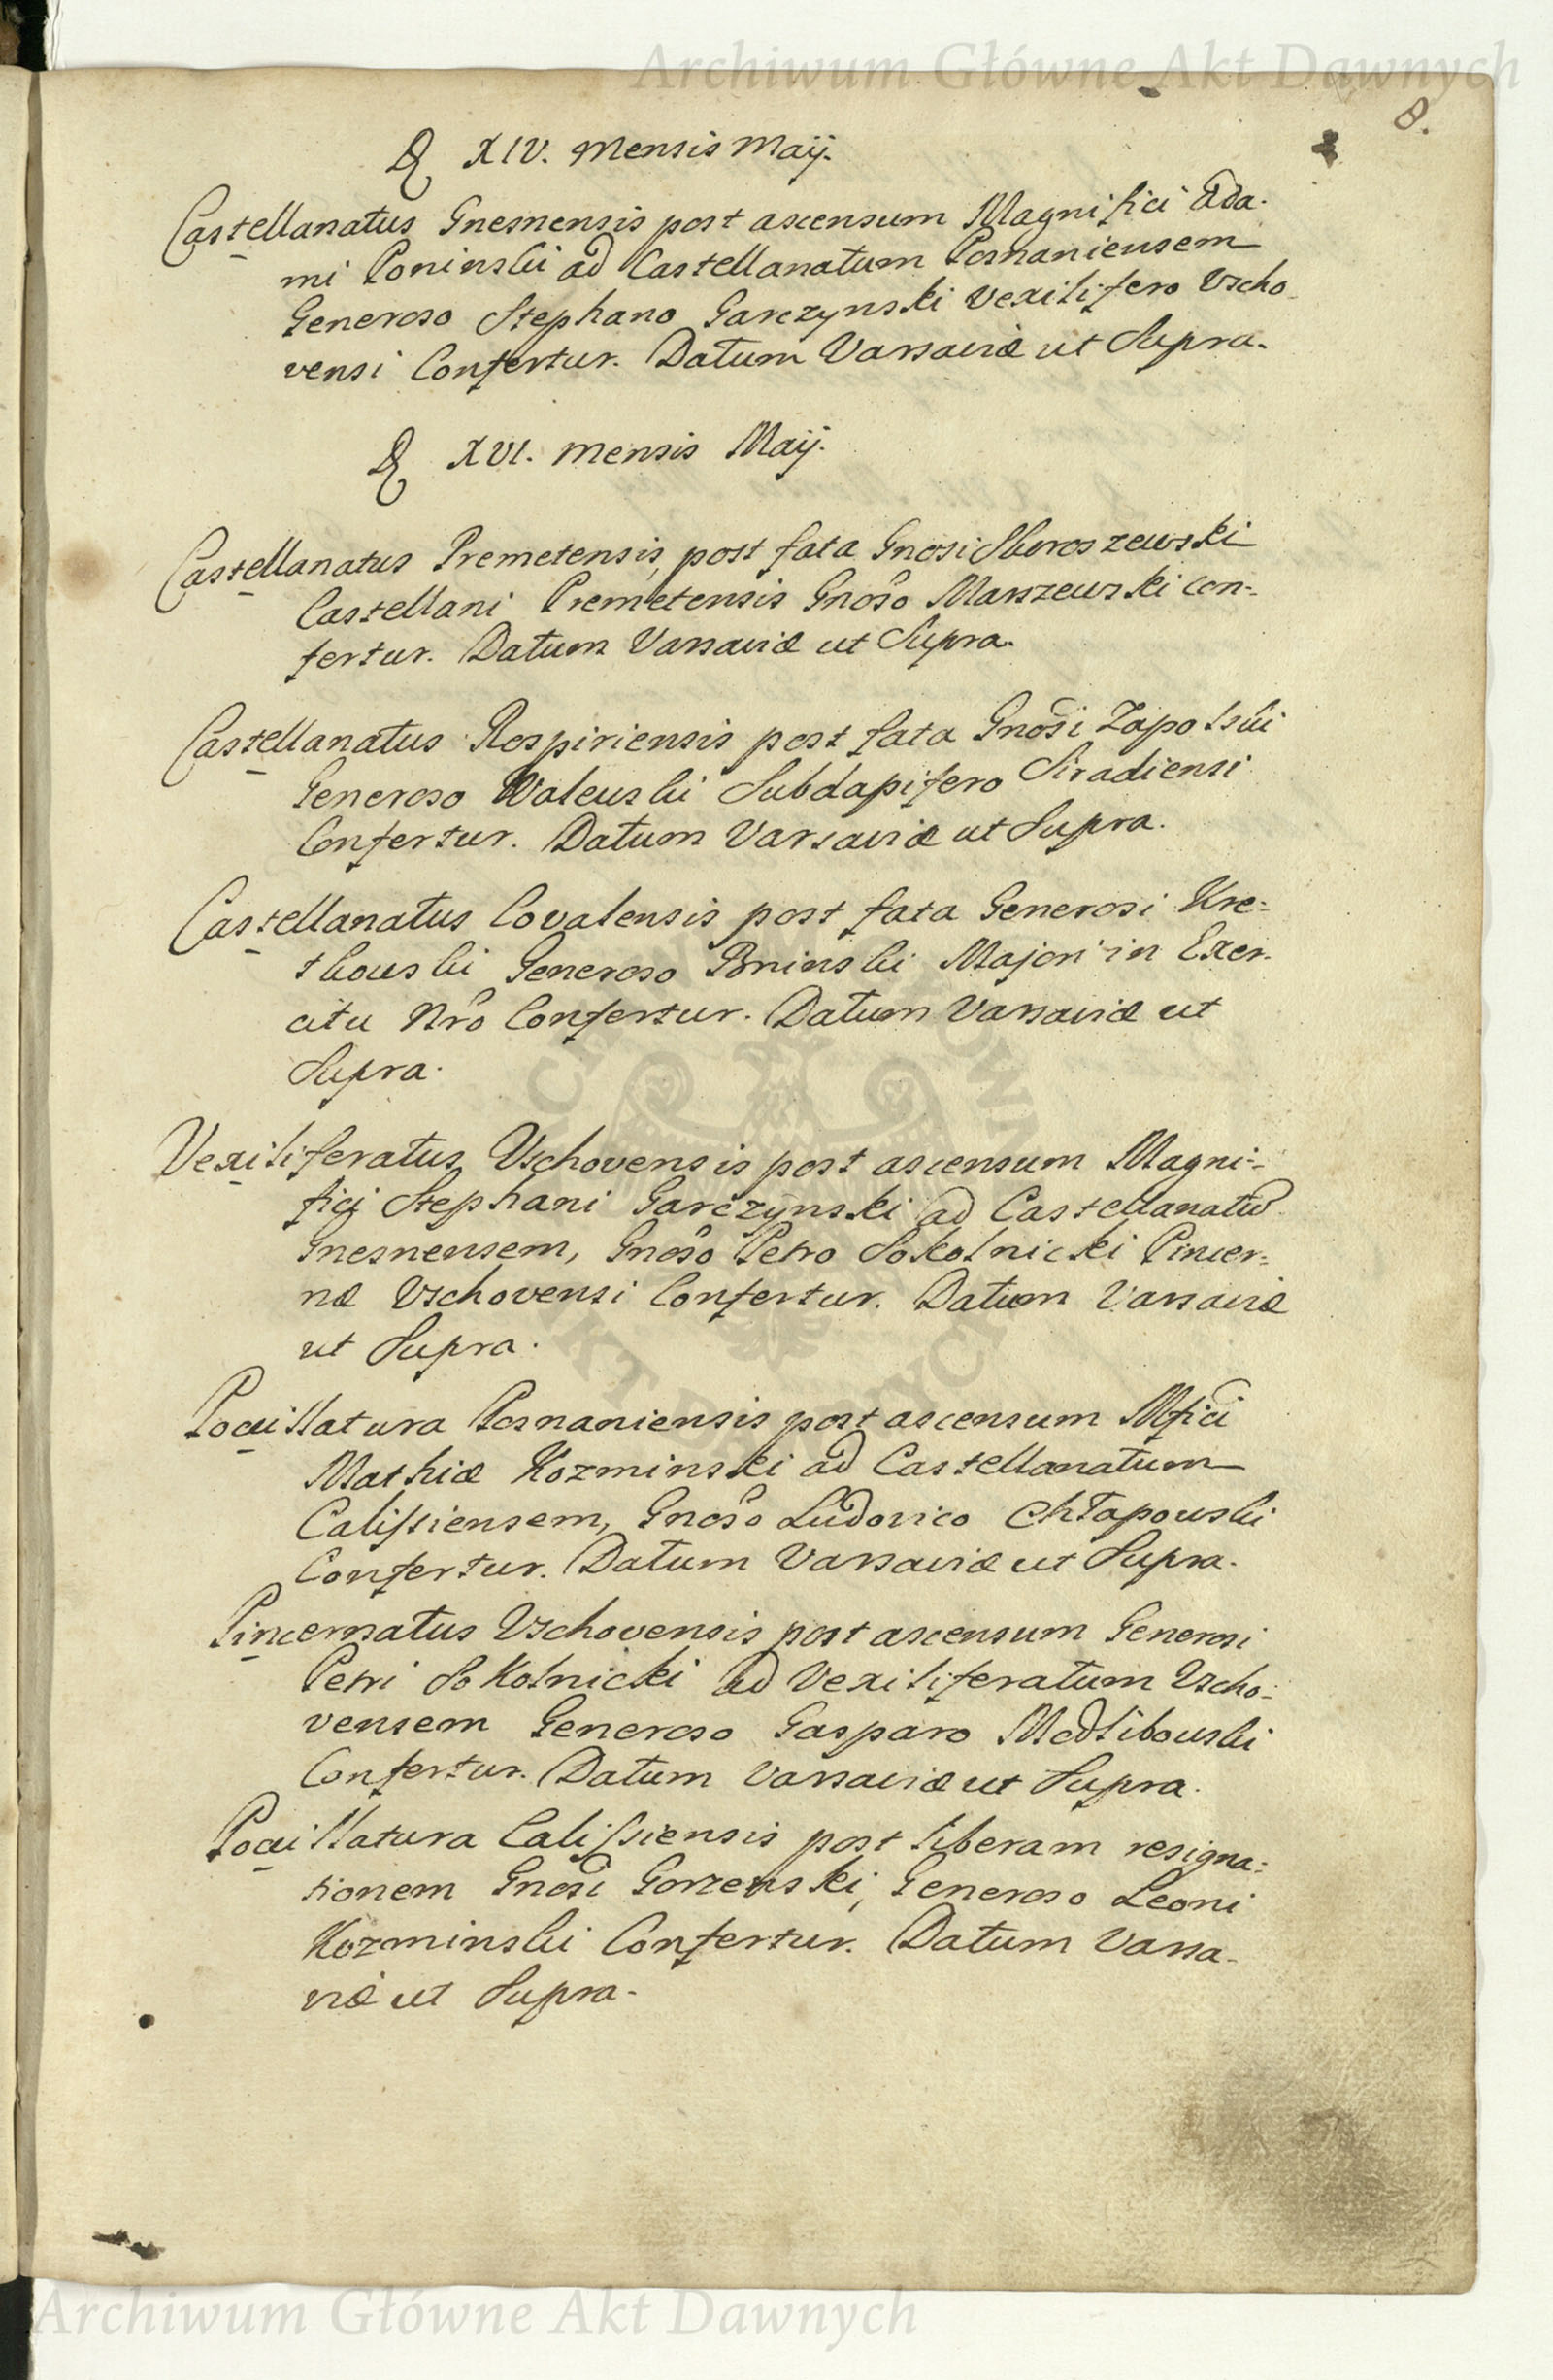 Archiwum Główne Akt Dawnych
8.
D XIV. Mensis Maij.
Castellanatus Gnesnensis post ascensum Magnifici Ada-
mi Poninski ad Castellanatum Posnaniensem
Generoso Stephano Garczynski Vexilifero Vscho-
vensi Confertur. Datum Varsaviæ ut Supra.
D XVI. Mensis Maij.
Castellanatus Premetensis, post fata Gnosi Skoroszewski
Castellani Premetensis Gnoso Marszewski con-
fertur. Datum Varsaviæ ut Supra.
Castellanatus Rospiriensis post fata Gnosi Zapolski
Generoso Walewski Subdapifero Siradiensi
Confertur. Datum Varsaviæ ut Supra.
Castellanatus Covalensis post fata Generosi Kre-
tkowski Generoso Bninski Majori in Exer-
citu Nro Confertur. Datum Varsaviæ ut
Supra.
Vexiliferatus Vschovensis post ascensum Magni-
fici Stephani Garczynski ad Castellanatu
Gnesnensem, Gnoso Petro Sokolnicki Pincer-
næ Vschovensi Confertur. Datum Varsaviæ
ut Supra.
Pocillatura Posnaniensis post ascensum Mfici
Mathiæ Kozminski ad Castellanatum
Calissiensem, Gnoso Ludovico Chłapowski
Confertur. Datum Varsaviæ ut Supra.
Pincernatus Vschovensis post ascensum Generosi
Petri Sokolnicki ad Vexiliferatum Vscho-
vensem Generoso Gasparo Modlibowski
Confertur. Datum Varsaviæ ut Supra.
Pocillatura Calissiensis post liberam resigna-
tionem Gnosi Gorzenski, Generoso Leoni
Kozminski Confertur. Datum Varsa-
viæ ut Supra.
Archiwum Główne Akt Dawnych